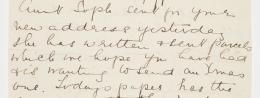 Aunt Soph sent for your
new address yesterday
she has written & sent parcels
which we hope you have had
& is wanting to send an Xmas
one. Todays paper has the